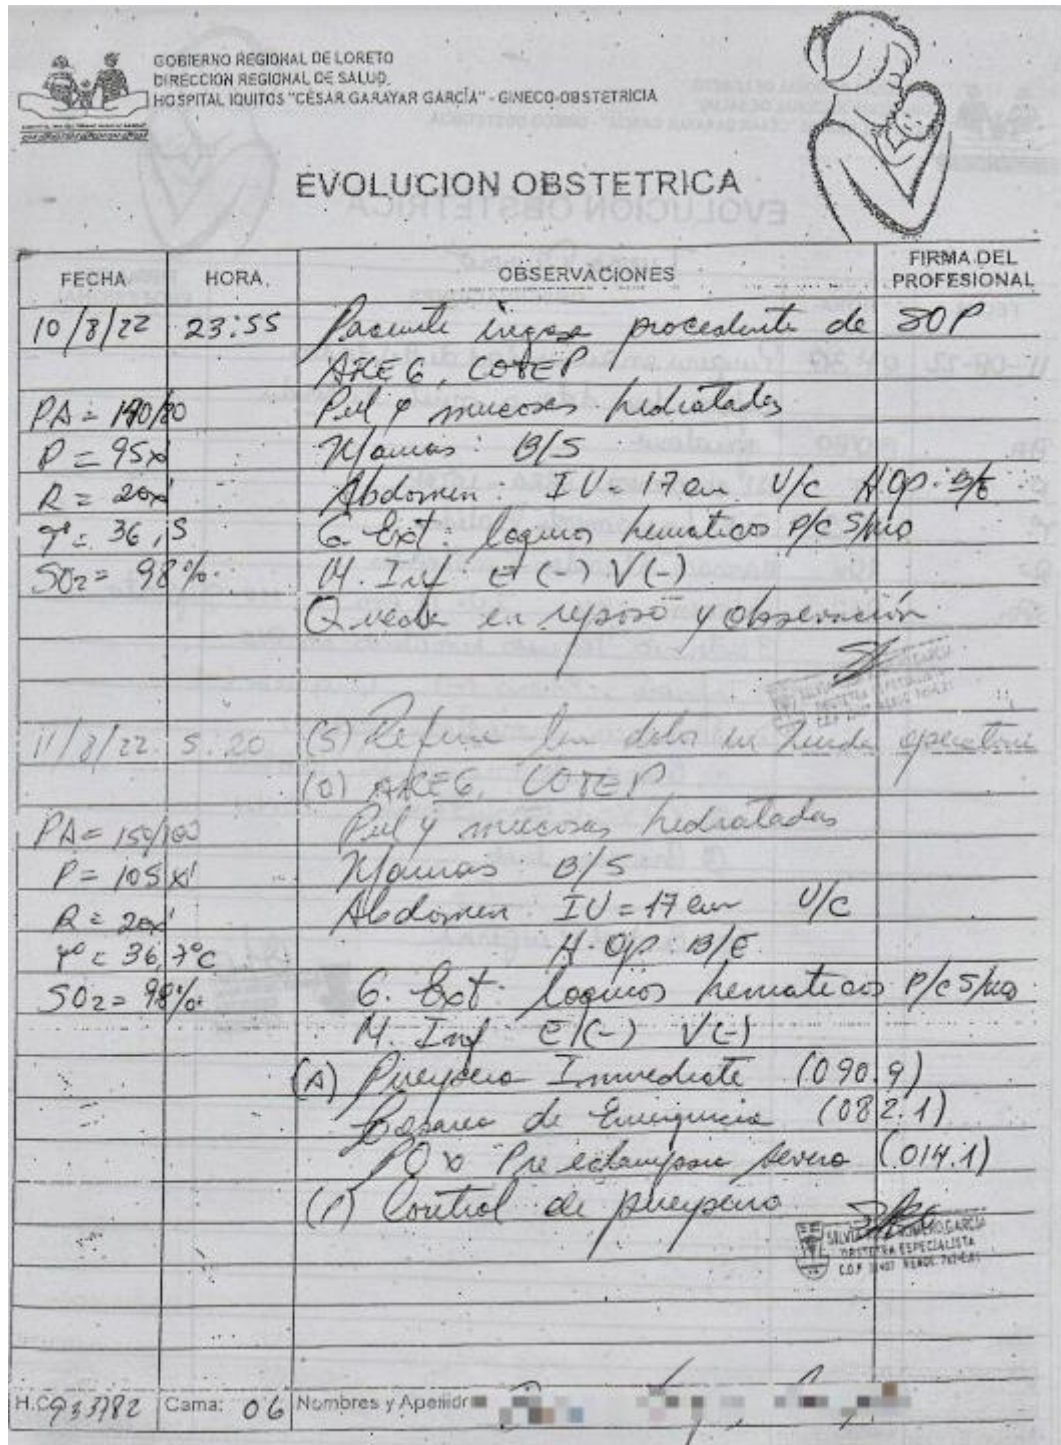 GOBIERNO REGIONAL DE LORETO
DIRECCION REGIONAL DE SALUD
HOSPITAL IQUITOS "CÉSAR GARAYAR GARCÍA" - GINECO-OBSTETRICIA
EVOLUCION OBSTETRICA
FECHA HORA. OBSERVACIONES FIRMA DEL PROFESIONAL
10/8/22 23:55 Paciente ingresa procedente de SOP
AREG, COTEP
PA = /80 Piel y mucosas hidratadas
P = 95x' Mamas: B/S
R = 20x' Abdomen: IU = 17 cm U/C H.Op: B/E
Tº = 36,5 G. Ext: loquios hematicos P/C S/mo
SO2 = 98% M. Inf E (-) V (-)
Queda en reposo y observación.
11/8/22 5:20 (S) Refiere leve dolor en herida operatoria
(O) AREG, COTEP
PA = 150/100 Piel y mucosas hidratadas
P = 105x' Mamas B/S
R = 20x' Abdomen IU = 17 cm U/C
Tº = 36,7ºC H.Op: B/E
SO2 = 98% G. Ext: loquios hematicos P/C S/mo
M. Inf E(-) V(-)
(A) Puerpera Inmediata (090.9)
Cesarea de Emergencia (082.1)
PO x Preeclampsia severa (014.1)
(P) Control de puerperio
SILVIA ROMERO GARCIA
OBSTETRA ESPECIALISTA
C.O.P
H.C 933782 Cama: 06 Nombres y Apellido